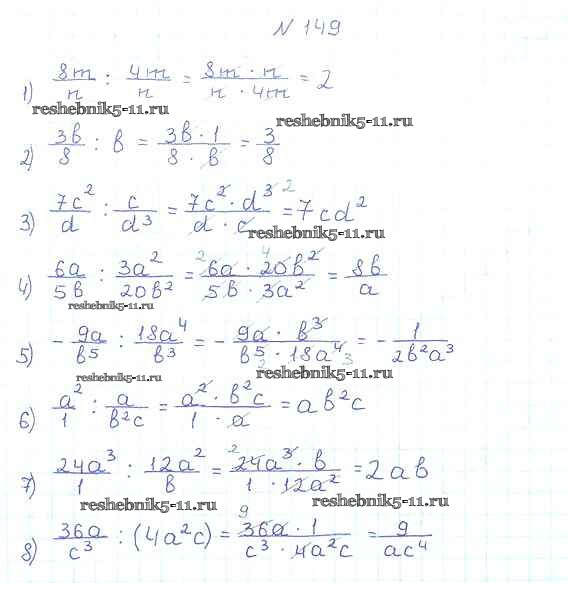 N 149
1) 8m/n : 4m/n = 8m · n / n · 4m = 2
reshebnik5-11.ru reshebnik5-11.ru
2) 3в/8 : в = 3в · 1 / 8 · в = 3/8
3) 7c²/d : c/d³ = 7c² · d³ ² / d · c = 7cd²
reshebnik5-11.ru
4) 6a/5в : 3a²/20в² = ² 6a · ⁴ 20в² / 5в · 3a² = 8в/a
reshebnik5-11.ru
5) - 9a/в⁵ : 18a⁴/в³ = - 9a · в³ / ₂ в⁵ · 18a⁴ ₃ = - 1/2в²a³
reshebnik5-11.ru reshebnik5-11.ru
6) a²/1 : a/в²c = a² · в²c / 1 · a = aв²c
7) 24a³/1 : 12a²/в = ² 24a³ · в / 1 · 12a² = 2aв
reshebnik5-11.ru reshebnik5-11.ru
8) 36a/c³ : (4a²c) = ⁹ 36a · 1 / c³ · 4a²c = 9/ac⁴
reshebnik5-11.ru reshebnik5-11.ru